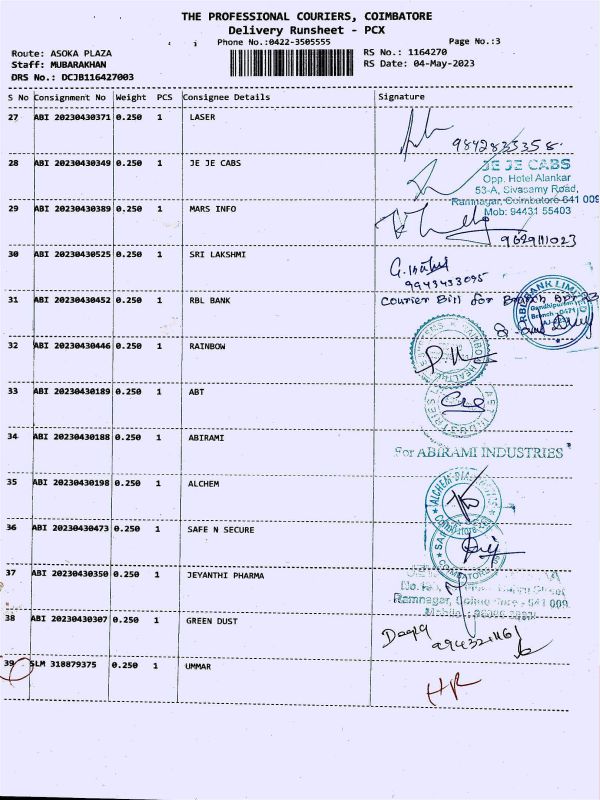 THE PROFESSIONAL COURIERS, COIMBATORE
Delivery Runsheet - PCX
Phone No.:0422-3505555
Page No.:3
Route: ASOKA PLAZA
RS No.: 1164270
Staff: MUBARAKHAN
RS Date: 04-May-2023
DRS No.: DCJB116427003
S No Consignment No Weight PCS Consignee Details Signature
27 ABI 20230430371 0.250 1 LASER
9842835358
28 ABI 20230430349 0.250 1 JE JE CABS
JE JE CABS
Opp. Hotel Alankar
53-A, Sivasamy Road,
Ramnagar, Coimbatore-641 009
Mob: 94431 55403
29 ABI 20230430389 0.250 1 MARS INFO
9629111023
30 ABI 20230430525 0.250 1 SRI LAKSHMI
9943433095
31 ABI 20230430452 0.250 1 RBL BANK
Courier Bill for Branch
RBL BANK LIMITED
Gandhipuram
Branch
32 ABI 20230430446 0.250 1 RAINBOW
33 ABI 20230430189 0.250 1 ABT
34 ABI 20230430188 0.250 1 ABIRAMI
For ABIRAMI INDUSTRIES
35 ABI 20230430198 0.250 1 ALCHEM
36 ABI 20230430473 0.250 1 SAFE N SECURE
COIMBATORE
37 ABI 20230430350 0.250 1 JEYANTHI PHARMA
Ramnagar, 641 009
38 ABI 20230430307 0.250 1 GREEN DUST
Deepa
39 SLM 318879375 0.250 1 UMMAR